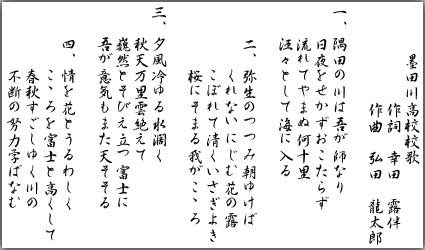 墨田川高校校歌
作詞 幸田 露伴
作曲 弘田 龍太郎
一、隅田の川は吾が師なり
日夜をせかずおこたらず
流れてやまぬ何十里
汪々として海に入る
二、弥生のつつみ朝ゆけば
くれないにじむ花の露
こぼれて清くいさぎよき
桜にそまる我がこゝろ
三、夕風冷ゆる水濶く
秋天万里雲絶えて
巍然とそびえ立つ富士に
吾が意気もまた天そそる
四、情を花とうるわしく
こゝろを富士と高くして
春秋すごしゆく川の
不断の努力学ばなむ